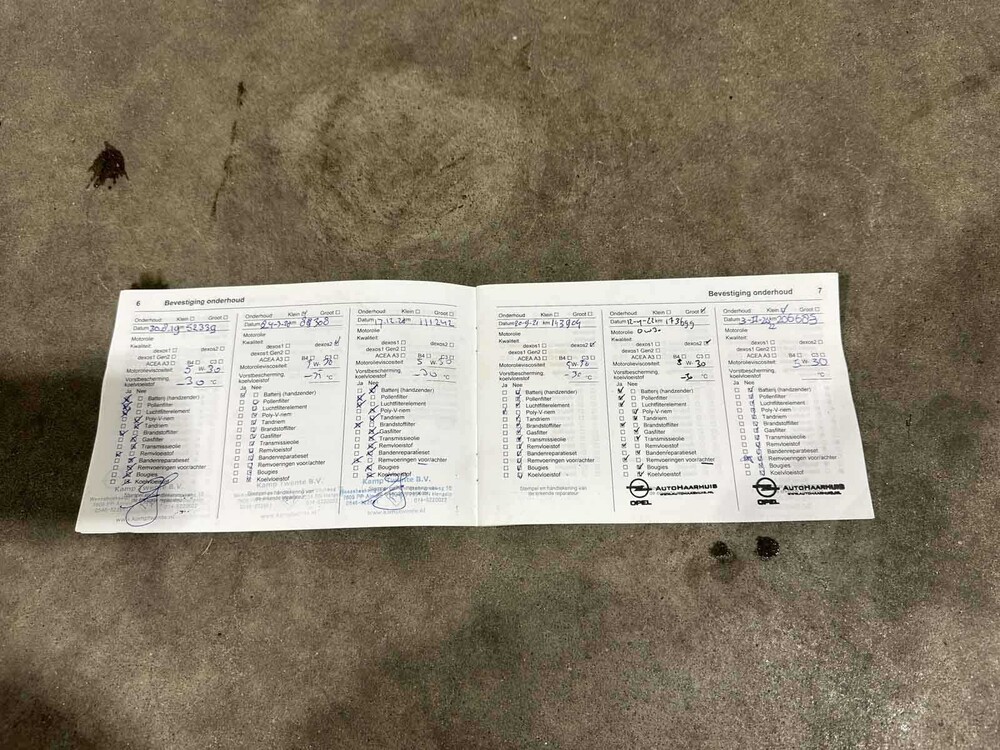 6 Bevestiging onderhoud
Onderhoud: Klein Groot
Datum 52239
Motorolie
Kwaliteit:
dexos1 dexos2
dexos1 Gen2
ACEA A3 B4 C3
Motorolieviscositeit 5 W 30
Vorstbescherming, koelvloeistof -30 °C
Ja Nee
Batterij (handzender)
Pollenfilter
Luchtfilterelement
Poly-V-riem
Tandriem
Brandstoffilter
Gasfilter
Transmissieolie
Remvloeistof
Bandenreparatieset
Remvoeringen voor/achter
Bougies
Koelvloeistof
Kamp Twente B.V.
www.kamptwente.nl
Onderhoud: Klein Groot
Datum
Motorolie
Kwaliteit:
dexos1 dexos2
dexos1 Gen2
ACEA A3 B4 C3
Motorolieviscositeit 5 W 30
Vorstbescherming, koelvloeistof °C
Ja Nee
Batterij (handzender)
Pollenfilter
Luchtfilterelement
Poly-V-riem
Tandriem
Brandstoffilter
Gasfilter
Transmissieolie
Remvloeistof
Bandenreparatieset
Remvoeringen voor/achter
Bougies
Koelvloeistof
Kamp Twente B.V.
Stempel en handtekening van
www.kamptwente.nl
Onderhoud: Klein Groot
Datum 17.12.20 km 111242
Motorolie
Kwaliteit:
dexos1 dexos2
dexos1 Gen2
ACEA A3 B4 C3
Motorolieviscositeit 5 W 30
Vorstbescherming, koelvloeistof -30 °C
Ja Nee
Batterij (handzender)
Pollenfilter
Luchtfilterelement
Poly-V-riem
Tandriem
Brandstoffilter
Gasfilter
Transmissieolie
Remvloeistof
Bandenreparatieset
Remvoeringen voor/achter
Bougies
Koelvloeistof
Kamp Twente B.V.
www.kamptwente.nl
Bevestiging onderhoud 7
Onderhoud: Klein Groot
Datum 20-9-21 km 143909
Motorolie
Kwaliteit:
dexos1 dexos2
dexos1 Gen2
ACEA A3 B4 C3
Motorolieviscositeit 5 W 30
Vorstbescherming, koelvloeistof -30 °C
Ja Nee
Batterij (handzender)
Pollenfilter
Luchtfilterelement
Poly-V-riem
Tandriem
Brandstoffilter
Gasfilter
Transmissieolie
Remvloeistof
Bandenreparatieset
Remvoeringen voor/achter
Bougies
Koelvloeistof
Stempel en handtekening van
de erkende reparateur
Onderhoud: Klein Groot
Datum km 173699
Motorolie
Kwaliteit:
dexos1 dexos2
dexos1 Gen2
ACEA A3 B4 C3
Motorolieviscositeit 5 W 30
Vorstbescherming, koelvloeistof -30 °C
Ja Nee
Batterij (handzender)
Pollenfilter
Luchtfilterelement
Poly-V-riem
Tandriem
Brandstoffilter
Gasfilter
Transmissieolie
Remvloeistof
Bandenreparatieset
Remvoeringen voor/achter
Bougies
Koelvloeistof
OPEL AUTOHAARHUIS
WWW.AUTOHAARHUIS.NL
Onderhoud: Klein Groot
Datum km
Motorolie
Kwaliteit:
dexos1 dexos2
dexos1 Gen2
ACEA A3 B4 C3
Motorolieviscositeit 5 W 30
Vorstbescherming, koelvloeistof °C
Ja Nee
Batterij (handzender)
Pollenfilter
Luchtfilterelement
Poly-V-riem
Tandriem
Brandstoffilter
Gasfilter
Transmissieolie
Remvloeistof
Bandenreparatieset
Remvoeringen voor/achter
Bougies
Koelvloeistof
OPEL AUTOHAARHUIS
WWW.AUTOHAARHUIS.NL